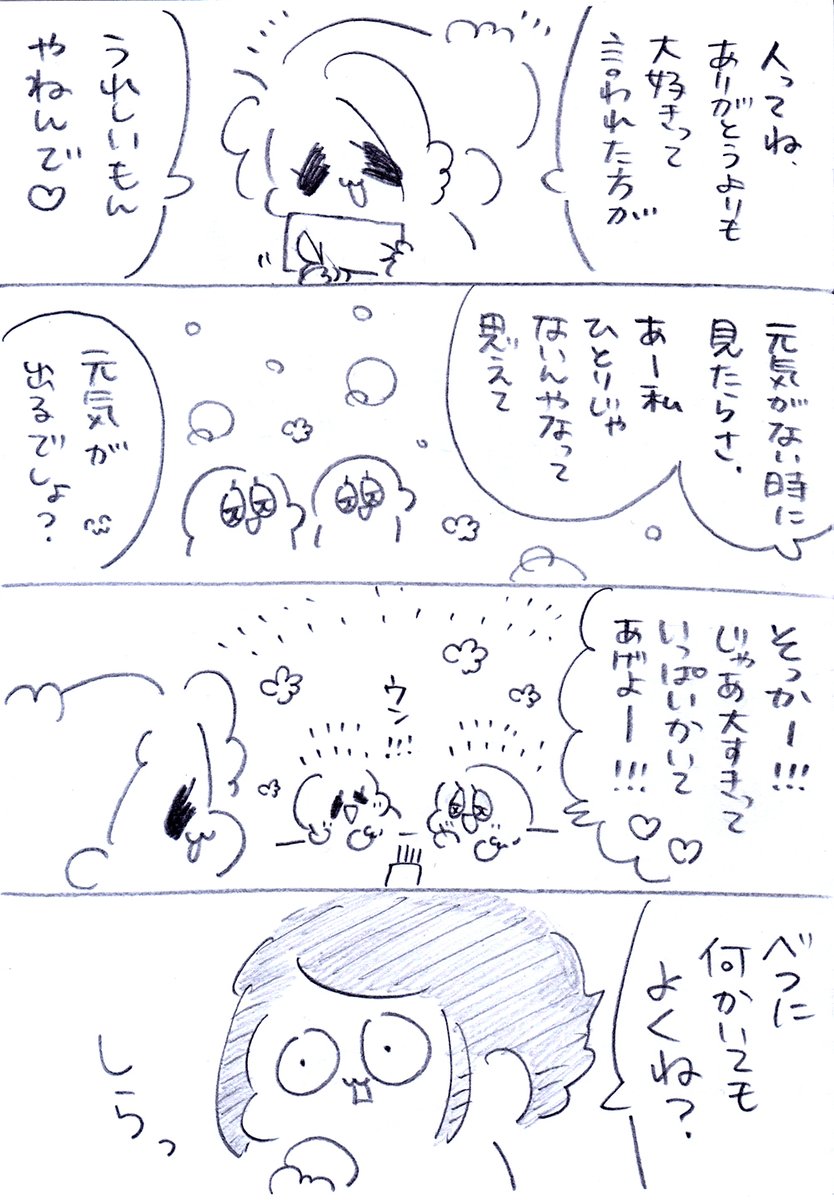 人ってね、
ありがとうよりも
大好きって
言われた方が
うれしいもん
やねんで♡
元気がない時に
見たらさ、
あー私
ひとりじゃ
ないんやなって
思えて
元気が
出るでしょ?
そっかー!!!
じゃあ大すきって
いっぱいかいて
あげよー!!!
♡♡
ウン!!!
べつに
何かいても
よくね?
しらっ